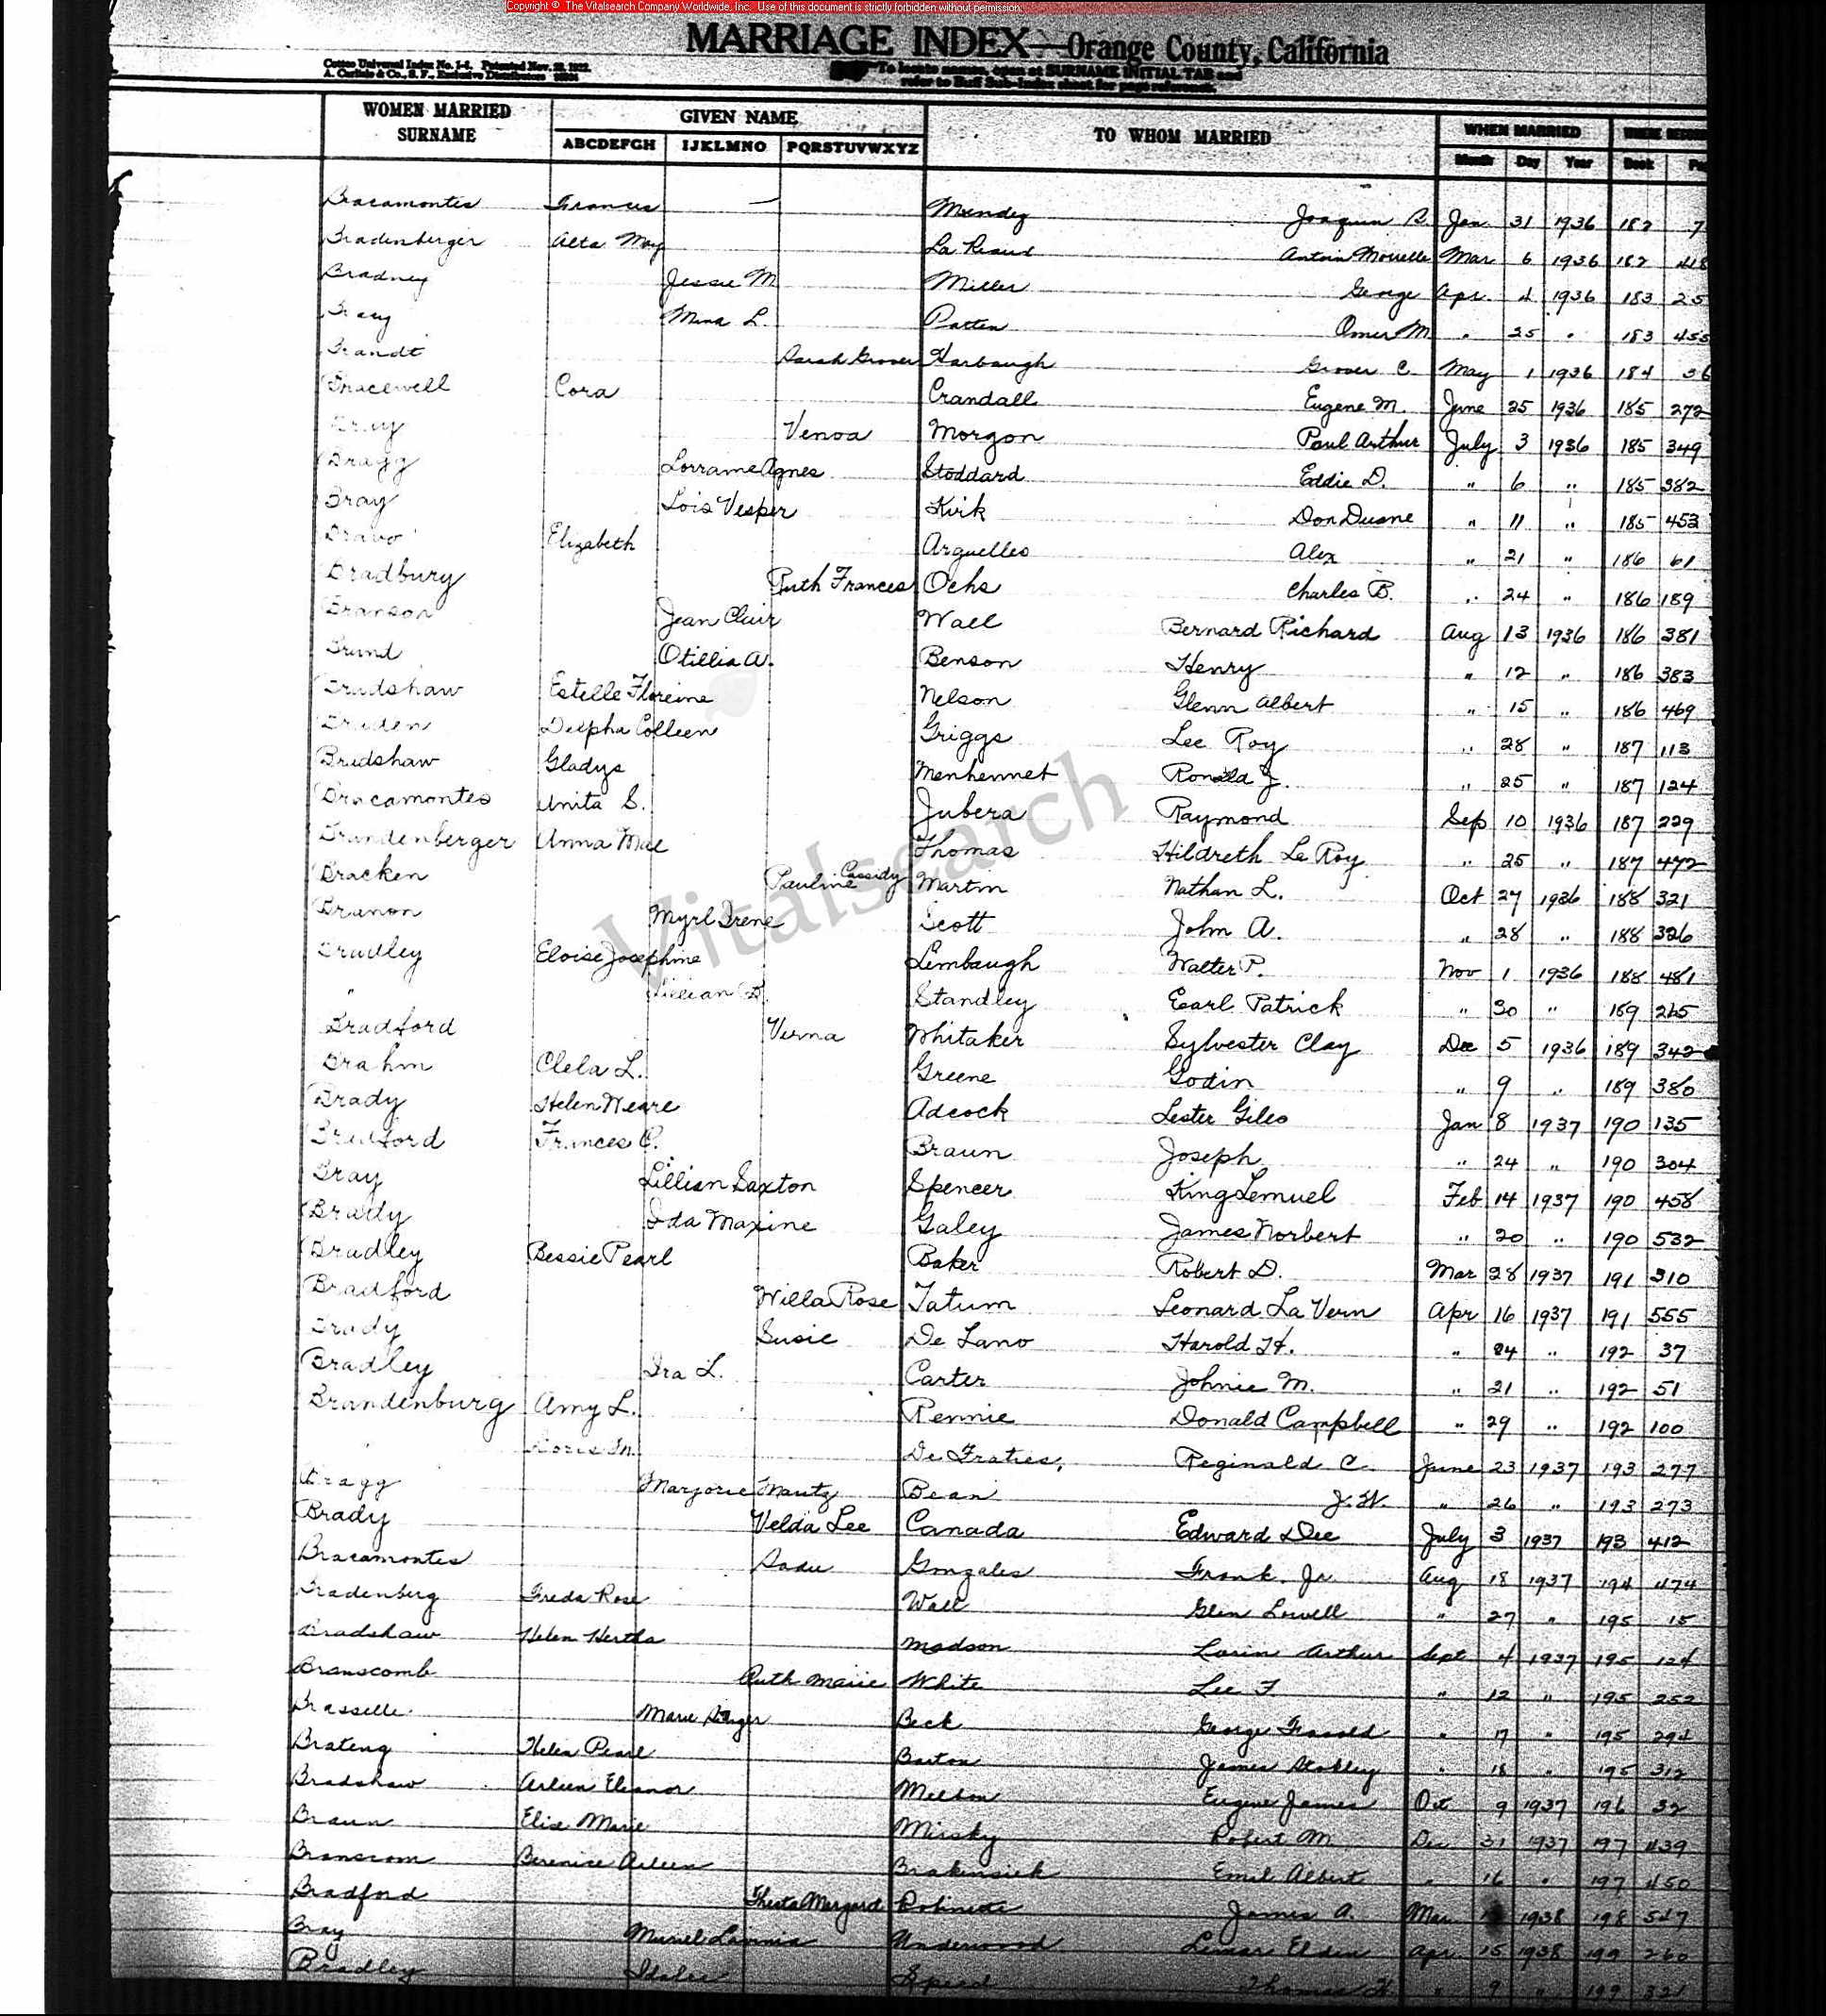 Copyright © The Vitalsearch Company Worldwide, Inc. Use of this document is strictly forbidden without permission.
MARRIAGE INDEX—Orange County, California
Cottco Universal Index No. 1-6. Patented Nov. 1922
A. Carlisle & Co., S. F., Exclusive Distributors
To locate names, open at SURNAME INITIAL TAB and
refer to Buff Sub-Index sheet for page reference.
WOMEN MARRIED SURNAME GIVEN NAME TO WHOM MARRIED WHEN MARRIED
ABCDEFGH IJKLMNO PQRSTUVWXYZ Month Day Year Book
Bracamontes Frances — Mendez Joaquin R. Jan 31 1936 182 7
Bradenberger Alta May La Reaud Antoin Mar 6 1936 182 418
Bradney Jessie M. Miller George Apr. 4 1936 183 25
Bray Mina L. Patten Omer M. " 25 " 183 455
Brandt Sarah Grover Harbaugh Grover C. May 1 1936 184 36
Bracewell Cora Crandall Eugene M. June 25 1936 185 272
Bray Venoa Morgon Paul Arthur July 3 1936 185 349
Bragg Lorraine Agnes Stoddard Eddie D. " 6 " 185 382
Bray Lois Vesper Kirk Don Duane " 11 " 185 453
Bravo Elizabeth Arguelles Alex " 21 " 186 61
Bradbury Ruth Frances Ochs Charles B. " 24 " 186 189
Branson Jean Clair Wall Bernard Richard Aug 13 1936 186 381
Brand Otillia A. Benson Henry " 12 " 186 383
Bradshaw Estelle Floreine Nelson Glenn Albert " 15 " 186 469
Braden Delpha Colleen Griggs Lee Roy " 28 " 187 113
Bradshaw Gladys Menhennet Ronald J. " 25 " 187 124
Bracamontes Anita S. Jubera Raymond Sep 10 1936 187 229
Brandenberger Anna Mae Thomas Hildreth Le Roy " 25 " 187 472
Bracken Pauline Cassidy Martin Nathan L. Oct 27 1936 188 321
Branon Myrl Irene Scott John A. " 28 " 188 326
Bradley Eloise Josephine Limbaugh Walter P. Nov 1 1936 188 481
" Lillian D. Standley Earl Patrick " 30 " 189 265
Bradford Verna Whitaker Sylvester Clay Dec 5 1936 189 342
Brahm Clela L. Greene Godin " 9 " 189 380
Brady Helen Weare Adcock Lester Giles Jan 8 1937 190 135
Bradford Frances C. Braun Joseph " 24 " 190 304
Bray Lillian Saxton Spencer King Lemuel Feb 14 1937 190 458
Brady Ida Maxine Galey James Norbert " 20 " 190 532
Bradley Bessie Pearl Baker Robert D. Mar 28 1937 191 310
Bradford Willa Rose Tatum Leonard La Vern Apr 16 1937 191 555
Brady Susie De Lano Harold H. " 24 " 192 37
Bradley Ira L. Carter Johnie M. " 21 " 192 51
Brandenburg Amy L. Rennie Donald Campbell " 29 " 192 100
" Doris M. De Fraties, Reginald C. June 23 1937 193 277
Bragg Marjorie Mautz Bean J. W. " 26 " 193 273
Brady Velda Lee Canada Edward Dee July 3 1937 193 412
Bracamontes Sadie Gonzales Frank Jr. Aug 18 1937 194 474
Bradenberg Freda Rose Wall Glen Lowell " 27 " 195 15
Bradshaw Helen Hertha Madson Lorin Arthur Sept 4 1937 195 124
Branscomb Ruth Marie White Lee F. " 12 " 195 252
Brasselle Marie Beck George Harold " 17 " 195 294
Brateng Helen Pearl Barton James Stokley " 18 " 195 312
Bradshaw Arleen Eleanor Melson Eugene James Oct 9 1937 196 32
Braun Elise Marie Mirsky Robert M. Dec 31 1937 197 439
Branscom Berenice Arleen Brakensiek Emil Albert " 16 " 197 450
Bradford Theta Margaret Robinette James A. Mar 1938 198 547
Bray Muriel Underwood Elden Apr. 15 1938 199 260
Bradley Idalee Speed Thomas H. " 9 " 199 321
Vitalsearch